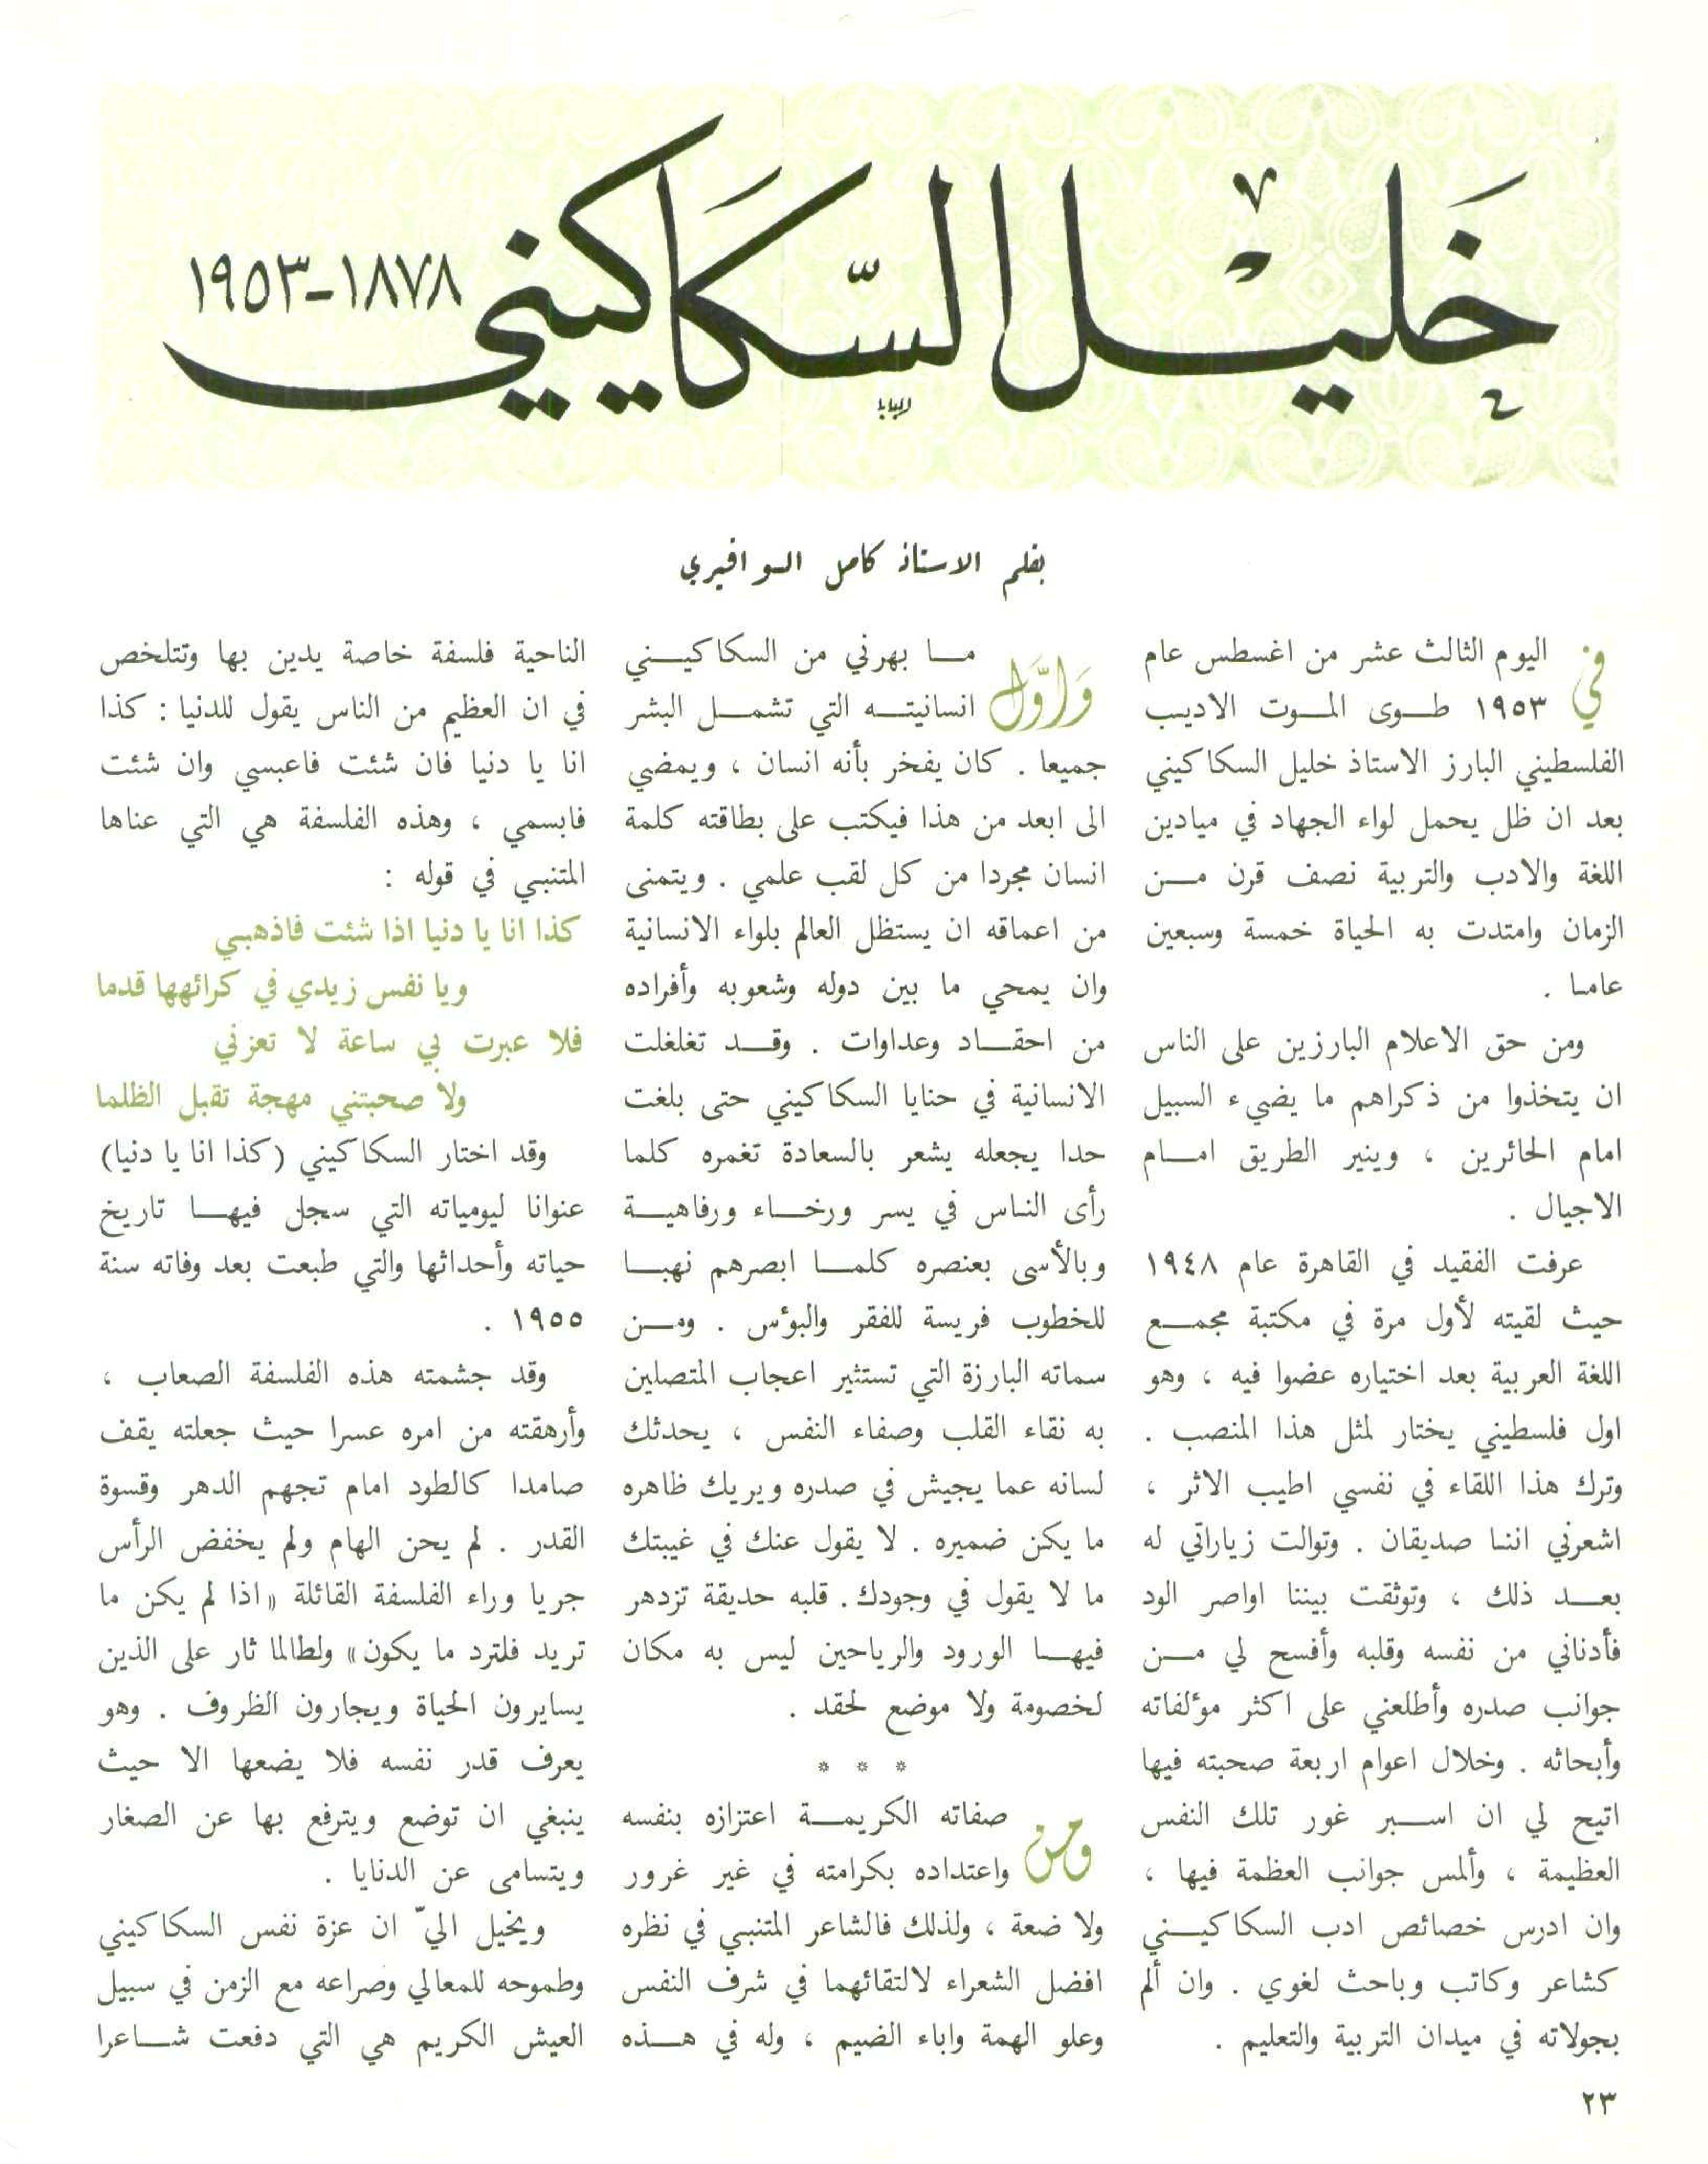 خَليْل السَّكَاكيني
١٨٧٨-١٩٥٣
بقلم الاستاذ كامل السوافيري
في اليوم الثالث عشر من اغسطس عام
١٩٥٣ طوى الموت الاديب
الفلسطيني البارز الاستاذ خليل السكاكيني
بعد ان ظل يحمل لواء الجهاد في ميادين
اللغة والادب والتربية نصف قرن من
الزمان وامتدت به الحياة خمسة وسبعين
عاما .
ومن حق الاعلام البارزين على الناس
ان يتخذوا من ذكراهم ما يضيء السبيل
امام الحائرين ، وينير الطريق امام
الاجيال .
عرفت الفقيد في القاهرة عام ١٩٤٨
حيث لقيته لأول مرة في مكتبة مجمع
اللغة العربية بعد اختياره عضوا فيه ، وهو
اول فلسطيني يختار لمثل هذا المنصب .
وترك هذا اللقاء في نفسي اطيب الاثر ،
اشعرني اننا صديقان . وتوالت زياراتي له
بعد ذلك ، وتوثقت بيننا اواصر الود
فأدناني من نفسه وقلبه وأفسح لي من
جوانب صدره وأطلعني على اكثر مؤلفاته
وأبحاثه . وخلال اعوام اربعة صحبته فيها
اتيح لي ان اسبر غور تلك النفس
العظيمة ، وألمس جوانب العظمة فيها ،
وان ادرس خصائص ادب السكاكيني
كشاعر وكاتب وباحث لغوي . وان ألم
بجولاته في ميدان التربية والتعليم .
وَاوَّل ما بهرني من السكاكيني
انسانيته التي تشمل البشر
جميعا . كان يفخر بأنه انسان ، ويمضي
الى ابعد من هذا فيكتب على بطاقته كلمة
انسان مجردا من كل لقب علمي . ويتمنى
من اعماقه ان يستظل العالم بلواء الانسانية
وان يمحي ما بين دوله وشعوبه وأفراده
من احقاد وعداوات . وقد تغلغلت
الانسانية في حنايا السكاكيني حتى بلغت
حدا يجعله يشعر بالسعادة تغمره كلما
رأى الناس في يسر ورخاء ورفاهية
وبالأسى بعنصره كلما ابصرهم نهبا
للخطوب فريسة للفقر والبؤس . ومن
سماته البارزة التي تستثير اعجاب المتصلين
به نقاء القلب وصفاء النفس ، يحدثك
لسانه عما يجيش في صدره ويريك ظاهره
ما يكن ضميره . لا يقول عنك في غيبتك
ما لا يقول في وجودك. قلبه حديقة تزدهر
فيها الورود والرياحين ليس به مكان
لخصومة ولا موضع لحقد .
* * *
ومن صفاته الكريمة اعتزازه بنفسه
واعتداده بكرامته في غير غرور
ولا ضعة ، ولذلك فالشاعر المتنبي في نظره
افضل الشعراء لالتقائهما في شرف النفس
وعلو الهمة واباء الضيم ، وله في هذه
الناحية فلسفة خاصة يدين بها وتتلخص
في ان العظيم من الناس يقول للدنيا : كذا
انا يا دنيا فان شئت فاعبسي وان شئت
فابسمي ، وهذه الفلسفة هي التي عناها
المتنبي في قوله :
كذا انا يا دنيا اذا شئت فاذهبي
ويا نفس زيدي في كرائهها قدما
فلا عبرت بي ساعة لا تعزني
ولا صحبتني مهجة تقبل الظلما
وقد اختار السكاكيني (كذا انا يا دنيا)
عنوانا ليومياته التي سجل فيها تاريخ
حياته وأحداثها والتي طبعت بعد وفاته سنة
١٩٥٥ .
وقد جشمته هذه الفلسفة الصعاب ،
وأرهقته من امره عسرا حيث جعلته يقف
صامدا كالطود امام تجهم الدهر وقسوة
القدر . لم يحن الهام ولم يخفض الرأس
جريا وراء الفلسفة القائلة «اذا لم يكن ما
تريد فلترد ما يكون» ولطالما ثار على الذين
يسايرون الحياة ويجارون الظروف . وهو
يعرف قدر نفسه فلا يضعها الا حيث
ينبغي ان توضع ويترفع بها عن الصغار
ويتسامى عن الدنايا .
ويخيل اليّ ان عزة نفس السكاكيني
وطموحه للمعالي وصراعه مع الزمن في سبيل
العيش الكريم هي التي دفعت شاعرا
٢٣